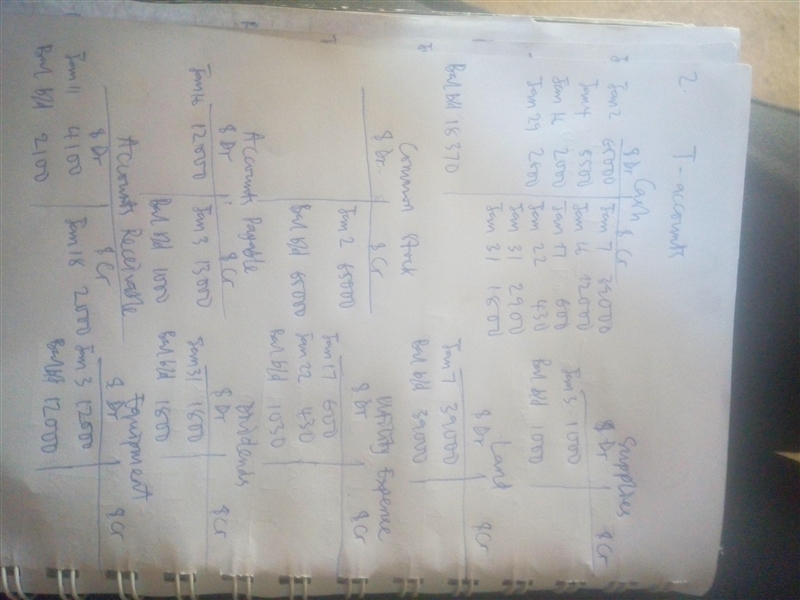 2. T-accounts
Cash
$ Dr $ Cr
Jan 2 65000 Jan 7 39000
Jan 4 5500 Jan 14 12000
2000 Jan 17 600
Jan 29 2400 Jan 22 430
Jan 31 2900
Jan 31 1600
Bal b/d 18370
Supplies
$ Dr $ Cr
Jan 3 1000
Bal b/d 1000
Land
$ Dr $ Cr
Jan 7 39000
Bal b/d 39000
Common Stock
$ Dr $ Cr
Jan 2 65000
Bal b/d 65000
Utility Expense
$ Dr $ Cr
Jan 17 600
Jan 22 430
Bal b/d 1030
Accounts Payable
$ Dr $ Cr
Jan 14 12000 Jan 3 13000
Bal b/d 1000
Dividends
$ Dr $ Cr
Jan 31 1600
Bal b/d 1600
Accounts Receivable
$ Dr $ Cr
Jan 11 4100 Jan 18 2000
Bal b/d 2100
Equipment
$ Dr $ Cr
Jan 3 12000
Bal b/d 12000